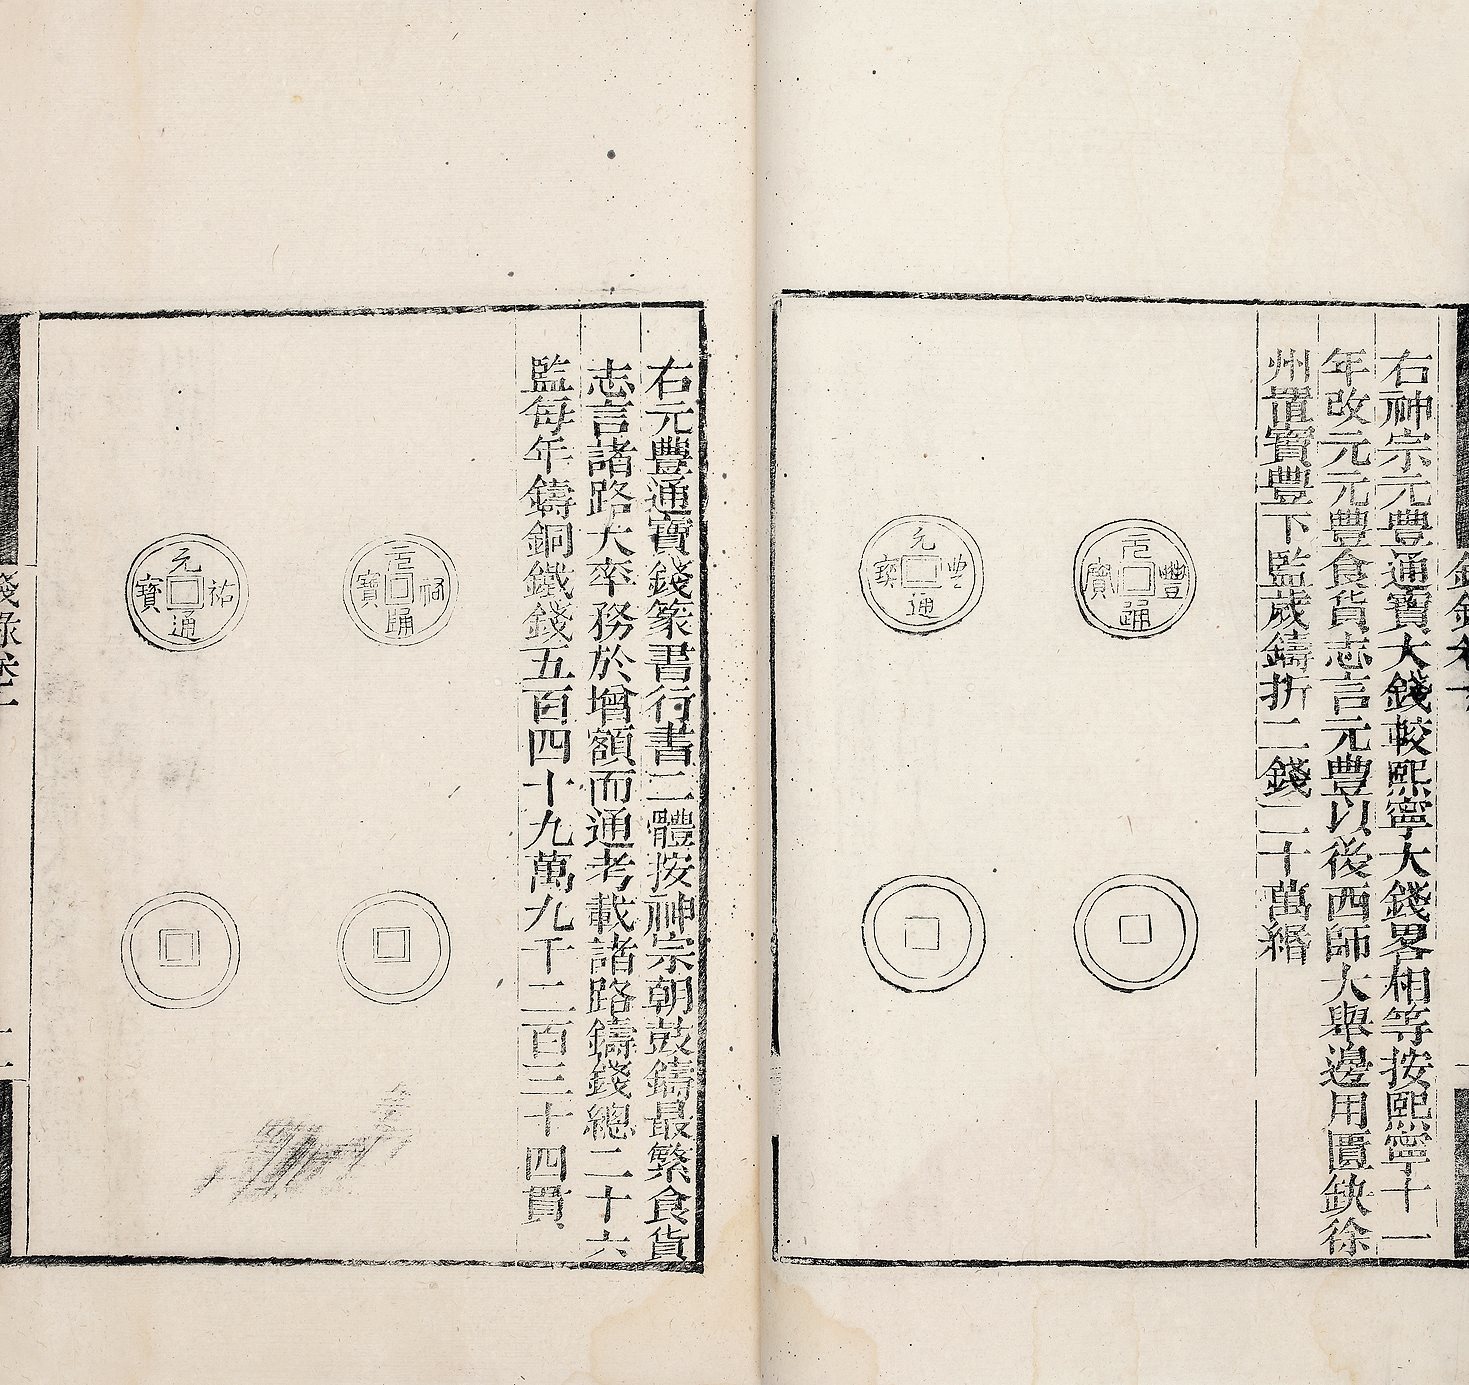 右神宗元豐通寶大錢較熙寧大錢畧相等按熙寧十一
年改元元豐食貨志言元豐以後西師大舉邊用匱缺徐
州置寶豐下監歲鑄折二錢二十萬緡
元豐通寶
元豐通寶
右元豐通寶錢篆書行書二體按神宗朝鼓鑄最繁食貨
志言諸路大率務於增額而通考載諸路鑄錢總二十六
監每年鑄銅鐵錢五百四十九萬九千二百三十四貫
元祐通寶
元祐通寶
錢錄卷十一